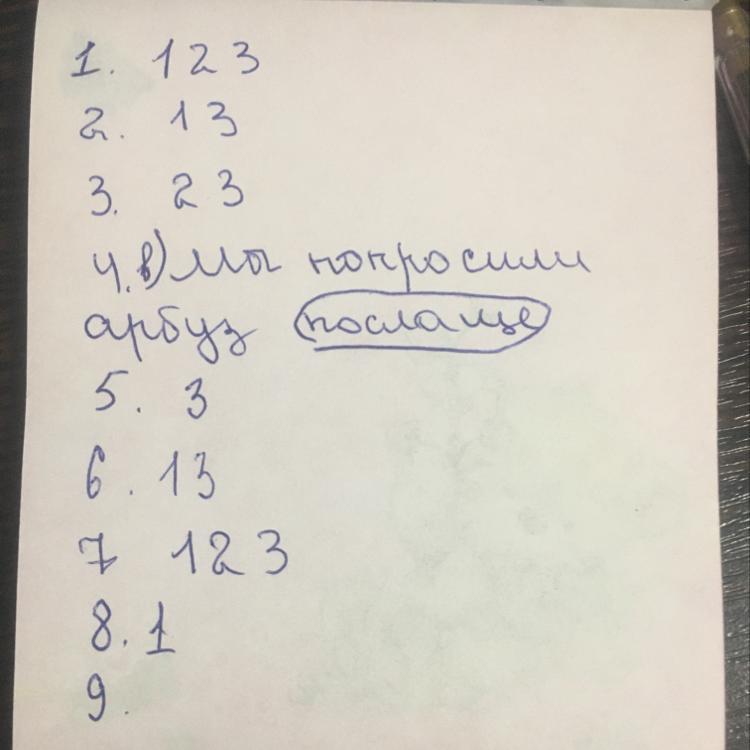 1. 1 2 3
2. 1 3
3. 2 3
4. в) Мы попросили
арбуз послаще
5. 3
6. 1 3
7 1 2 3
8. 1
9.